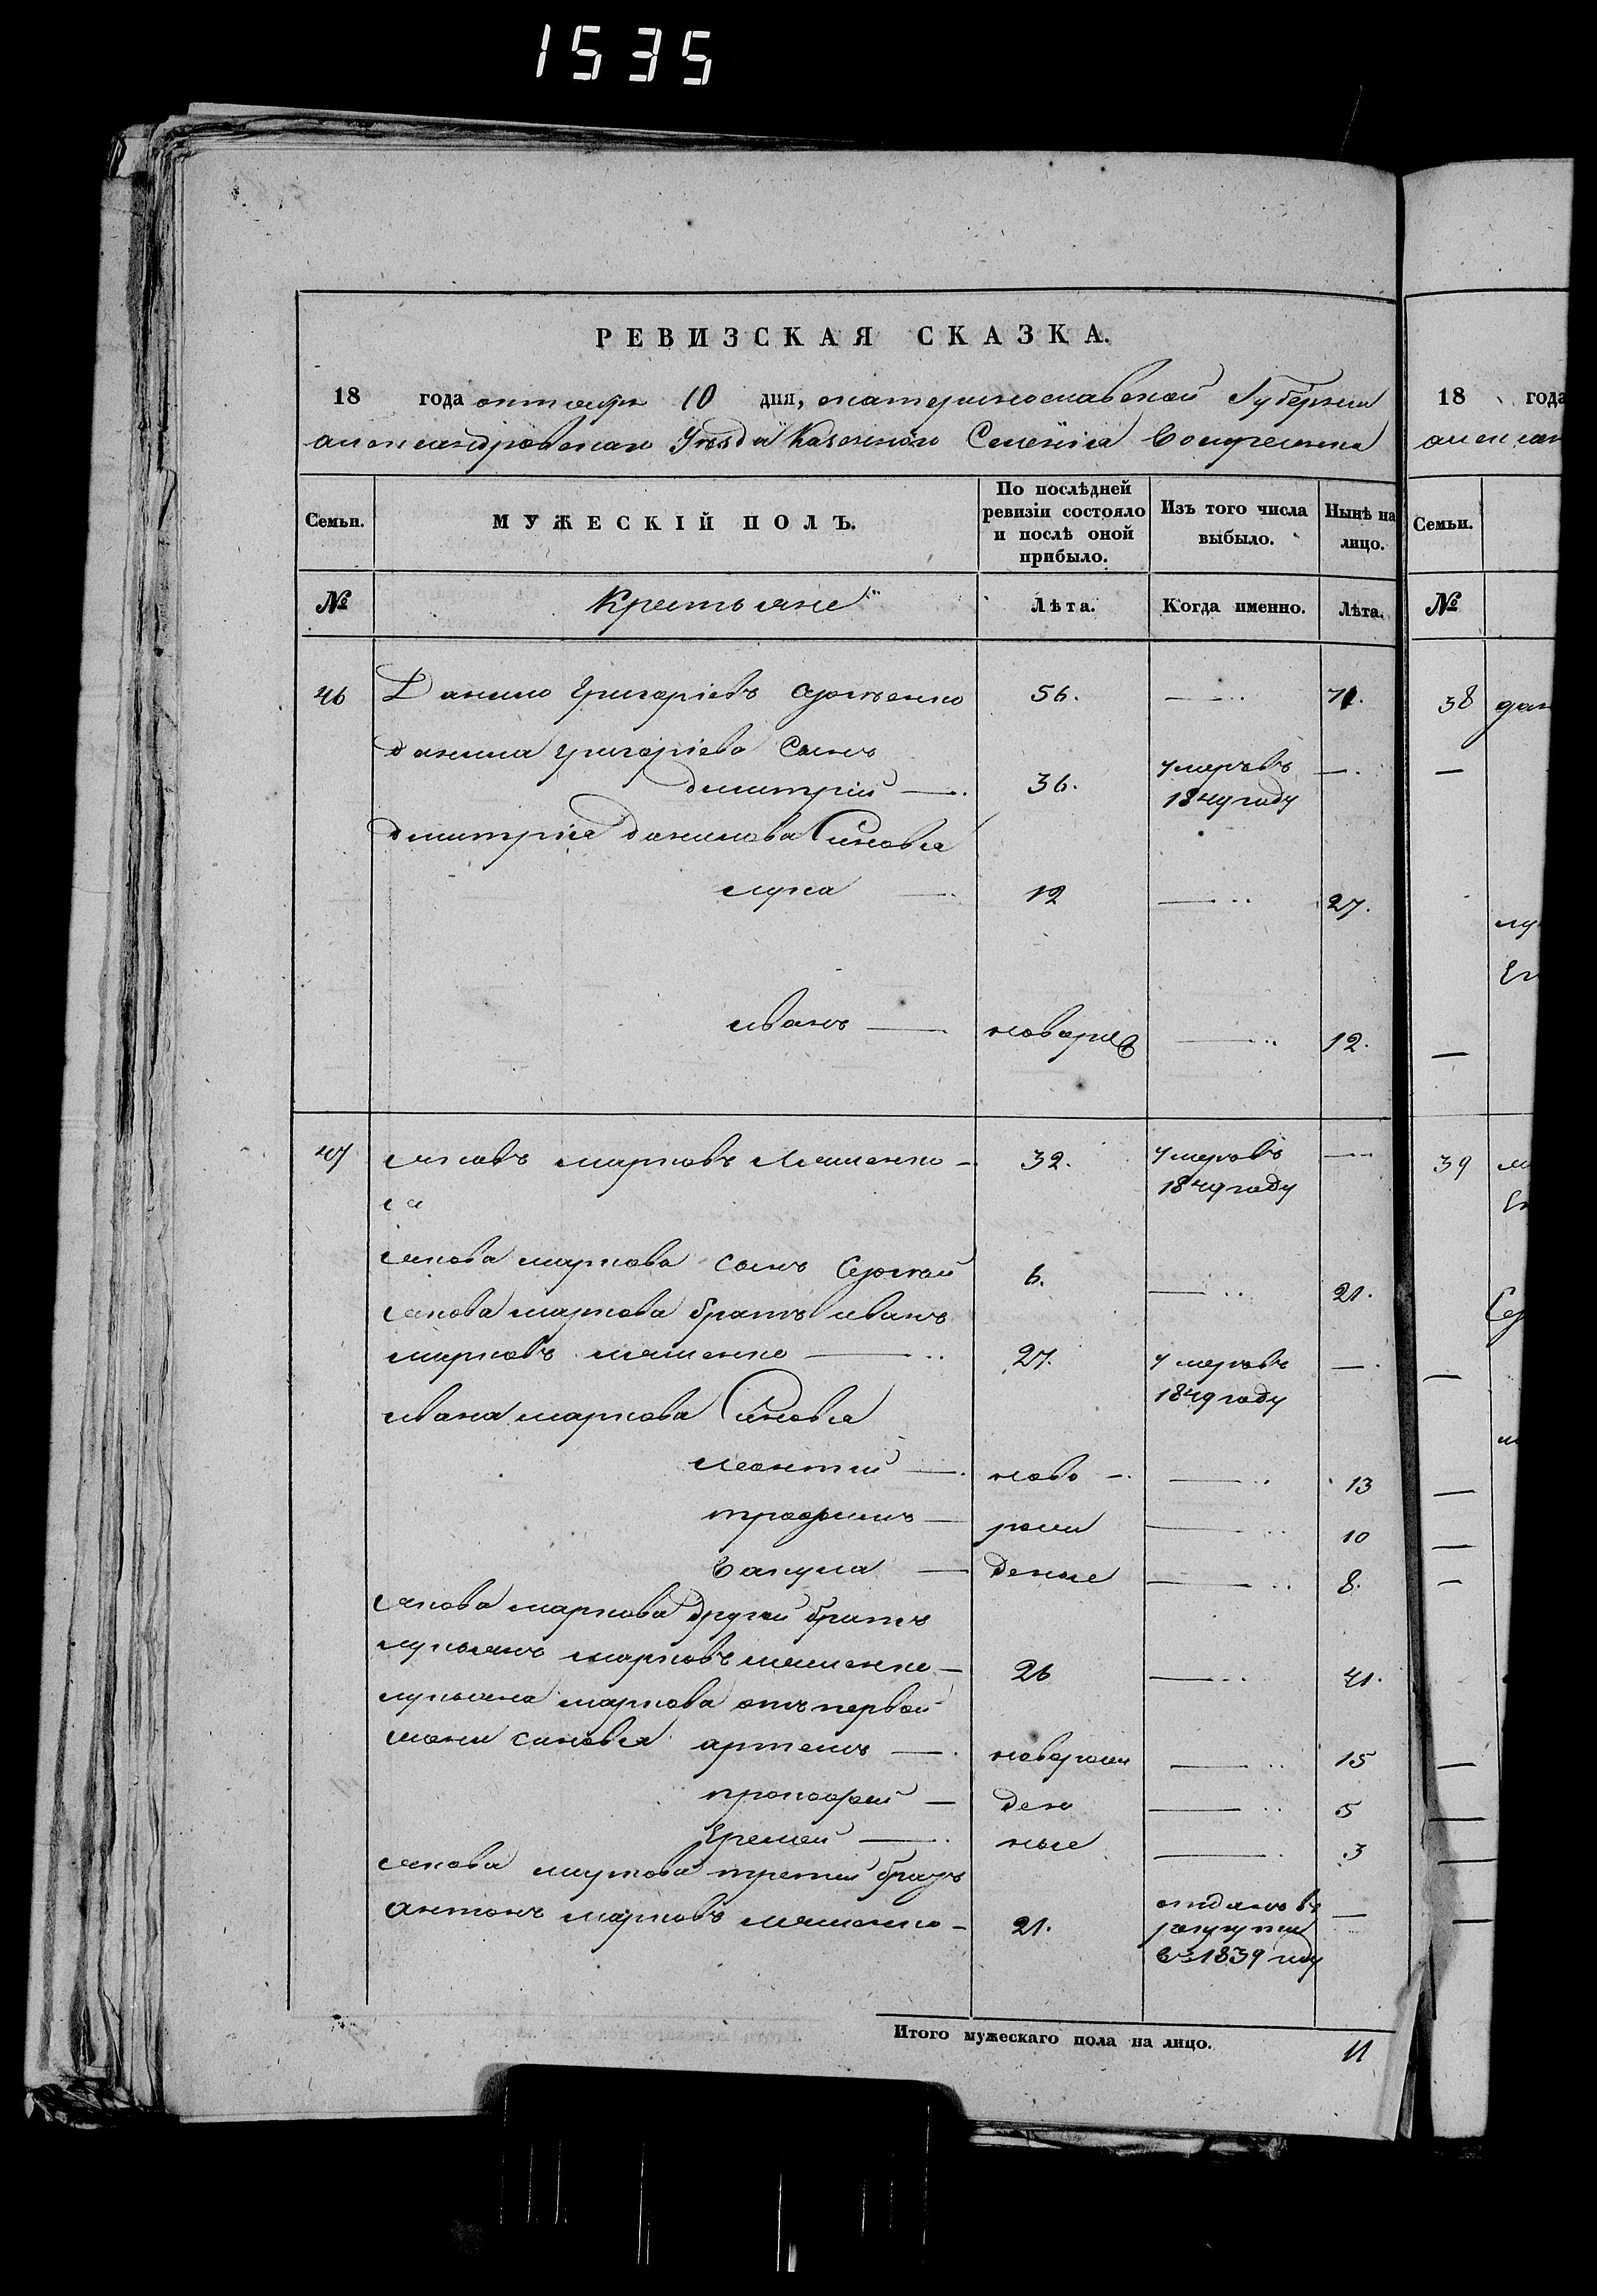 1535
РЕВИЗСКАЯ СКАЗКА.
18 года октября 10 дня, екатеринославской Губернии
александровскаго Уезда Казеннаго Селения
Семьи.
МУЖЕСКІЙ ПОЛЪ.
По послѣдней ревизіи состояло и послѣ оной прибыло.
Изъ того числа выбыло.
Нынѣ на лицо.
№
Крестьяне
Лѣта.
Когда именно.
Лѣта.
46 Данило Григоріевъ 56. 71.
Данила григоріева Сынъ
дмитрій 36. умеръ въ
1849 году
дмитрія данилова Синовья
лука 12 27.
иванъ новорож 12.
47 яковъ марковъ 32. умеръ въ
1849 году
якова маркова сынъ Сергей 6. 21.
якова маркова братъ иванъ
марковъ 27. умеръ въ
1849 году
ивана маркова Синовья
леонтий ново 13
трофимъ рожи 10
Вакула деные 8.
якова маркова другой братъ
лукьянъ марковъ 26 41.
лукьяна маркова отъ первой
жени синовья артемъ новорожи 15
прокофей ден 5
Еремей ные 3
якова маркова третий братъ
антонъ марковъ 21. отданъ въ
рекруты
въ 1839 году
Итого мужескаго пола на лицо. 11
18 года
Семьи.
№
38
39